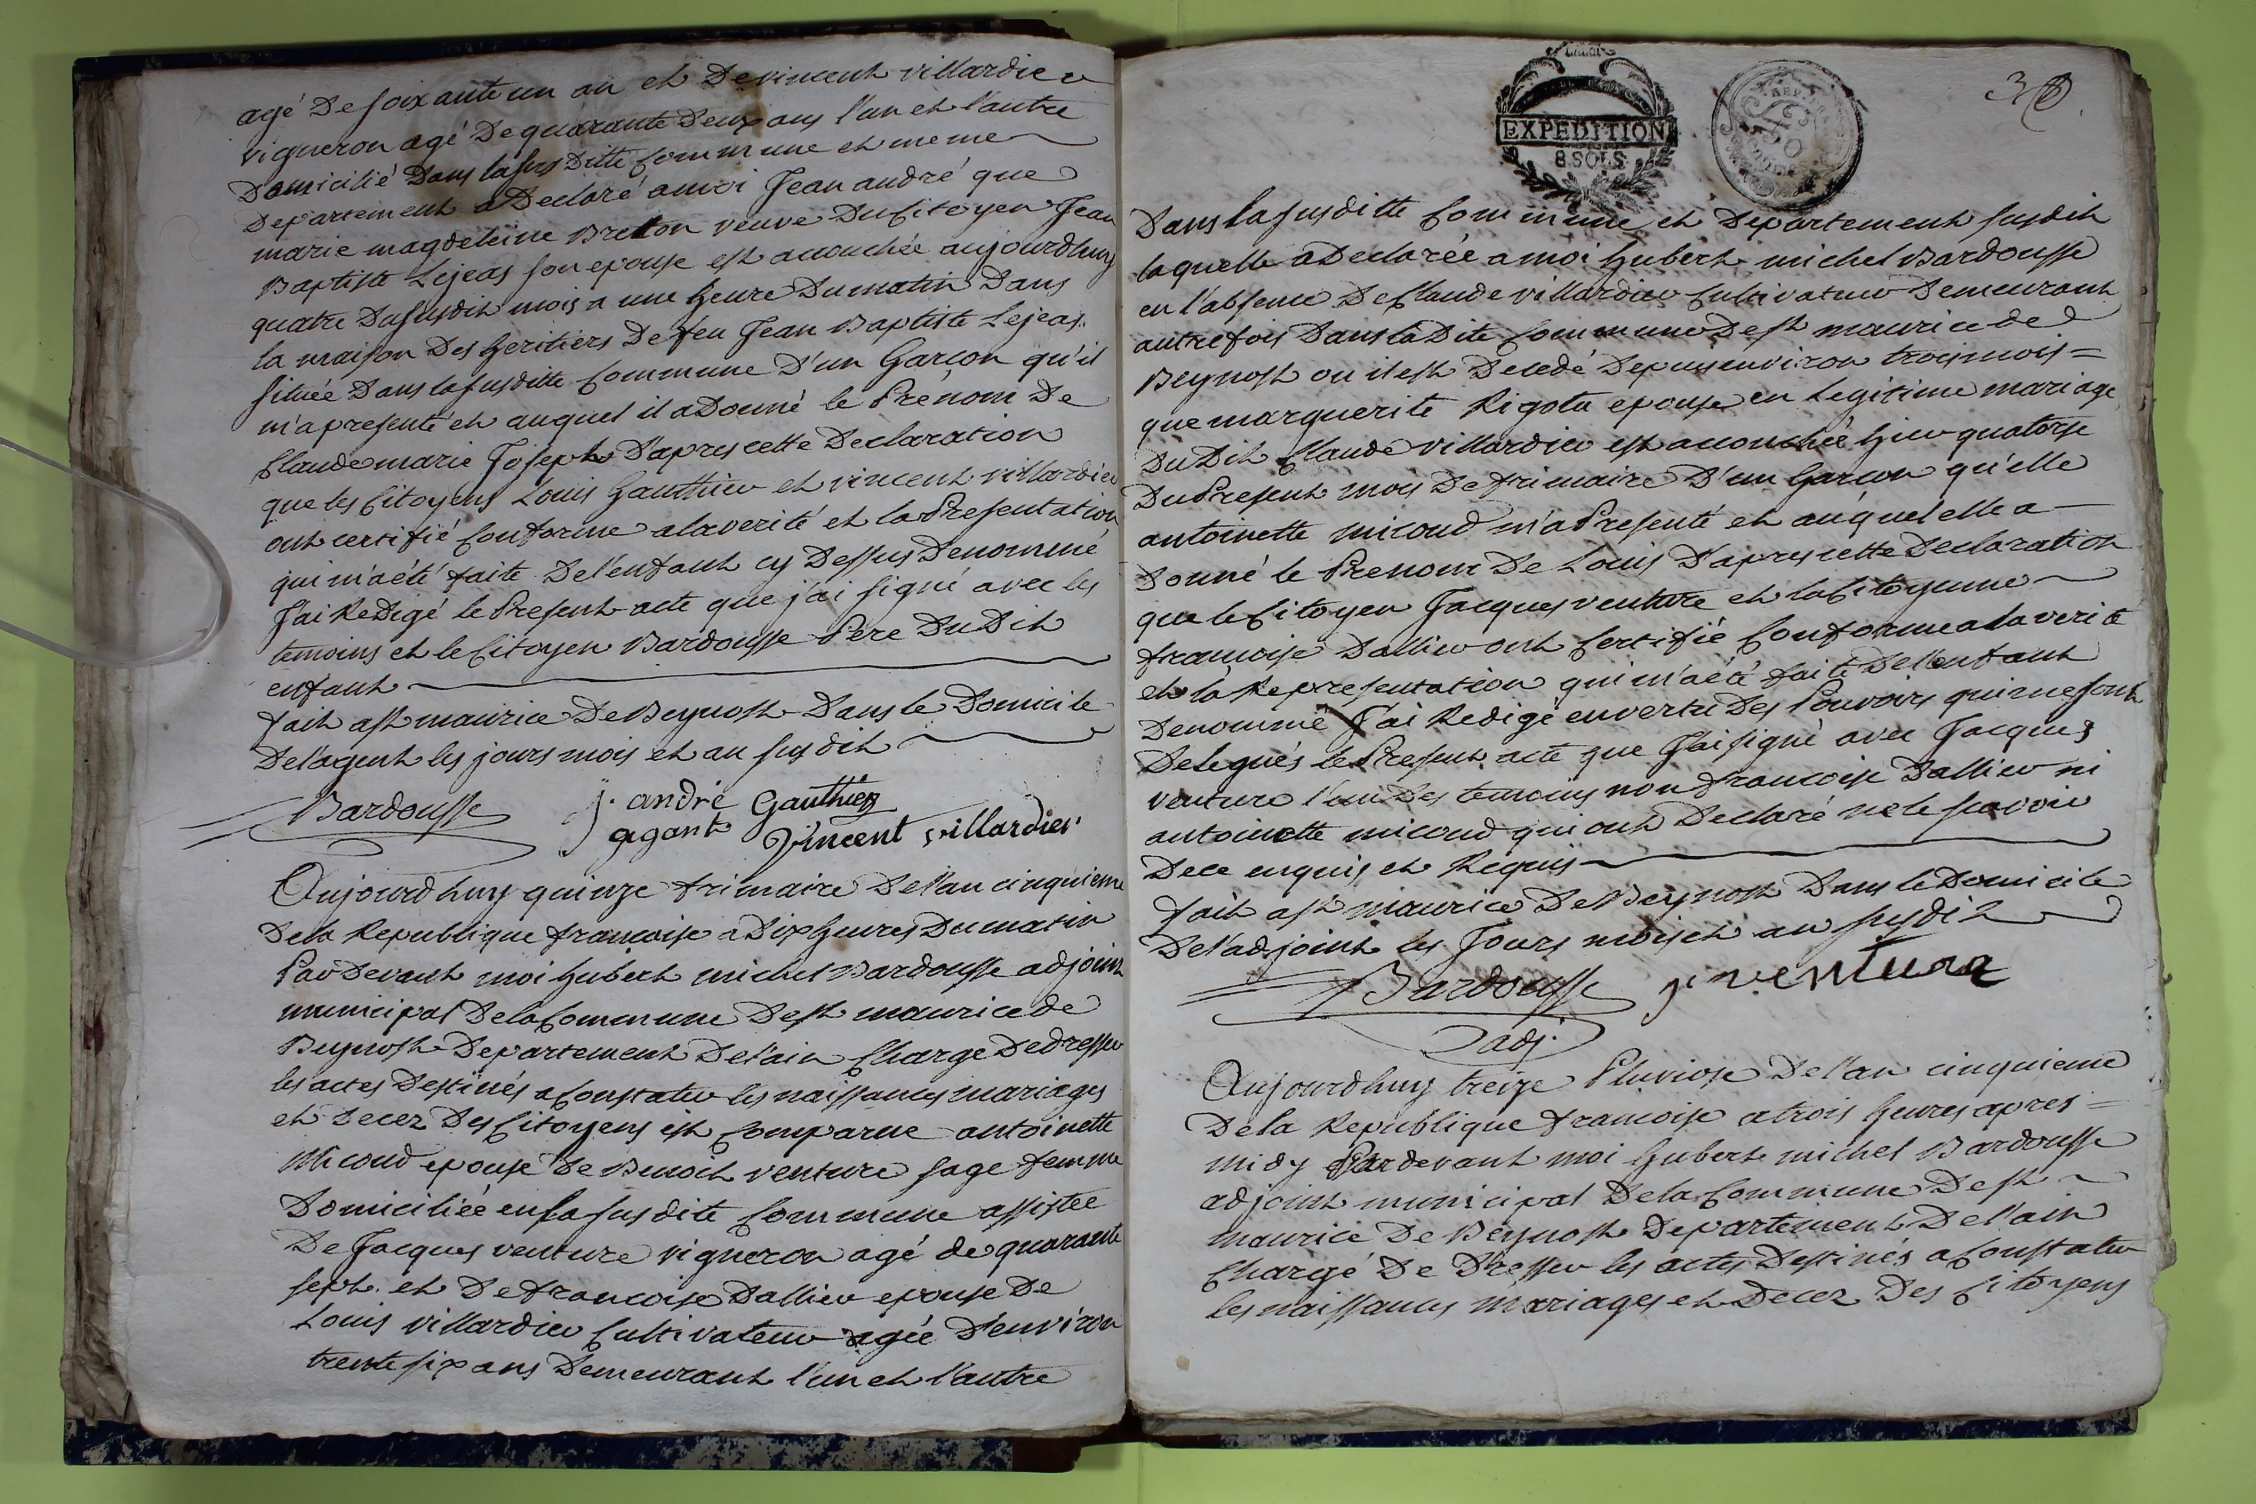 agé De soixante un an et De vincent villardier
vigneron agé De quarante Deux ans l'un et l'autre
Domicilié Dans la sus Ditte Commune et meme
Departement a Declaré a moi Jean andré que
marie magdeleine Bretton veuve Du Citoyen Jean
Baptiste Lejeas son epouse est accouchée aujourdhuy
quatre Du susdit mois a une heure Du matin Dans
la maison Des heritiers De feu Jean Baptiste Lejeas.
située Dans la susditte Commune D'un Garçon qu'il
m'a presenté et auquel il a Donné le Prénom De
Claude marie Joseph D'apres cette Declaration
que les Citoyens Louis Gauthier et vincent villardier
ont certifié Conforme a la verité et la Presentation
qui m'a été faite De l'enfant cy Dessus Denommé
J'ai Redigé le Present acte que j'ai signé avec les
temoins et le Citoyen Bardousse Pere Du Dit
enfant
fait a st maurice De Beynost Dans le Domicile
De l'agent les jours mois et an susdit
Bardousse j. andré Gauthier
agant Vincent villardier
Aujourdhuy quinze frimaire De l'an cinquieme
De la Republique francoise a Dix heures Du matin
Par Devant moi hubert michel Bardousse adjoint
municipal De la Commune De st maurice de
Beynost Departement De l'ain Chargé De dresser
les actes Destinés a Constater les naissances mariages
et Decez Des Citoyens est Comparue antoinette
Micoud epouse De Benoit venture sage femme
Domiciliée en la susdite Commune assistée
De Jacques venture vigneron agé de quarante
sept. et De francoise Dallier epouse De
Louis villardier Cultivateur agée D'environ
trente six ans Demeurant l'un et l'autre
EXPEDITION
8 SOLS
Dans la susditte Commune et Departement susdit
laquelle a Declarée a moi hubert michel Bardousse
en l'absence De Claude villardier Cultivateur Demeurant
autrefois Dans la Dite Commune De st maurice de
Beynost ou il est Decedé Depuis environ trois mois =
que marguerite Rigota epouse en Legitime mariage
Du Dit Claude villardier est accouchée hier quatorse
Du Present mois De frimaire D'un Garcon qu'elle
antoinette micoud m'a Presenté et auquel elle a
Donné le Prenom De Louis D'apres cette Declaration
que le Citoyen Jacques venture et la Citoyenne
francoise Dallier ont Certifié Conforme a la verité
et la Representation qui m'a été faite De l'enfant
Denommé J'ai Redigé en vertu Des Pouvoirs qui me sont
Delegués le Present acte que J'ai signé avec Jacques
venture l'un Des temoins non francoise Dallier ni
antoinette micoud qui ont Declaré ne le scavoir
De ce enquis et Requis
fait a st maurice De Beynost Dans le Domicile
De l'adjoint les Jours mois et an susdit
Bardousse j. ventura
adj.
Aujourdhuy treize Pluviose De l'an cinquieme
De la Republique francoise a trois heures apres =
midy Par devant moi hubert michel Bardousse
adjoint municipal De la Commune De st
maurice De Beynost Departement De l'ain
Chargé De Dresser les actes Destinés a Constater
les naissances mariages et Decez Des Citoyens